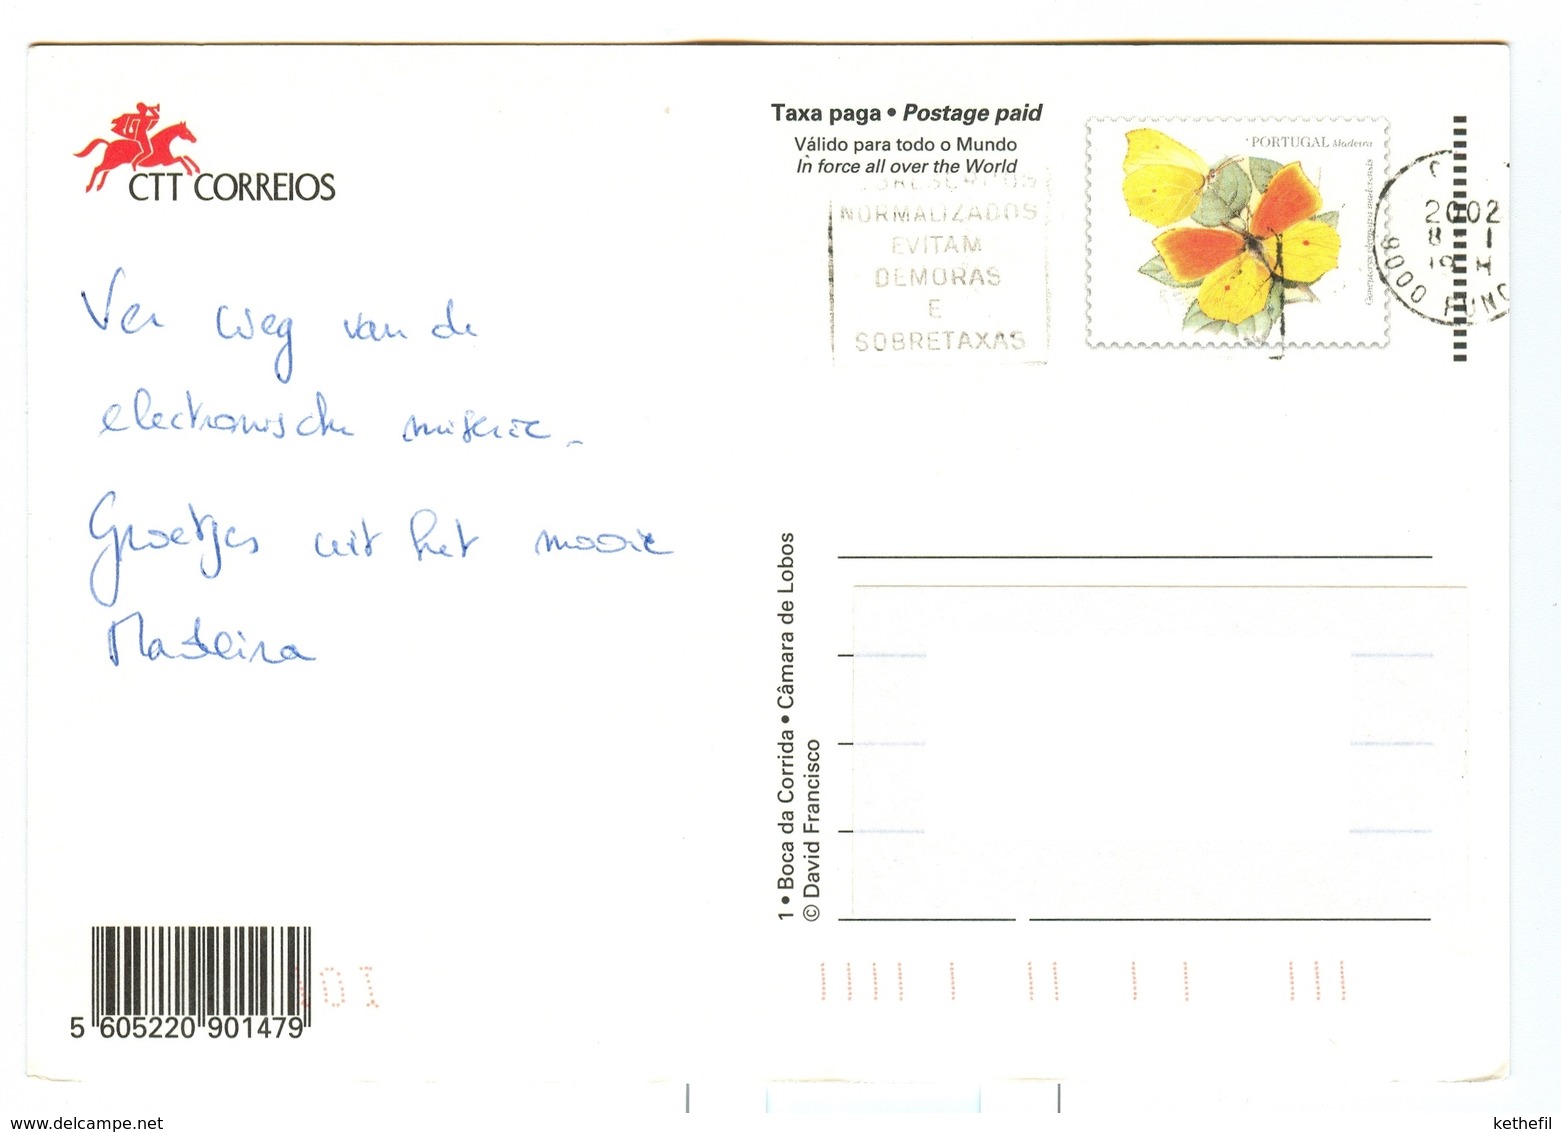 CTT CORREIOS
Ver weg van de
electronische miserie.
Groetjes uit het mooie
Madeira
5 605220 901479
Taxa paga • Postage paid
Válido para todo o Mundo
In force all over the World
NORMALIZADOS
EVITAM
DEMORAS
E
SOBRETAXAS
PORTUGAL Madeira
2002
1 • Boca da Corrida • Câmara de Lobos
© David Francisco
www.delcampe.net
kethefil